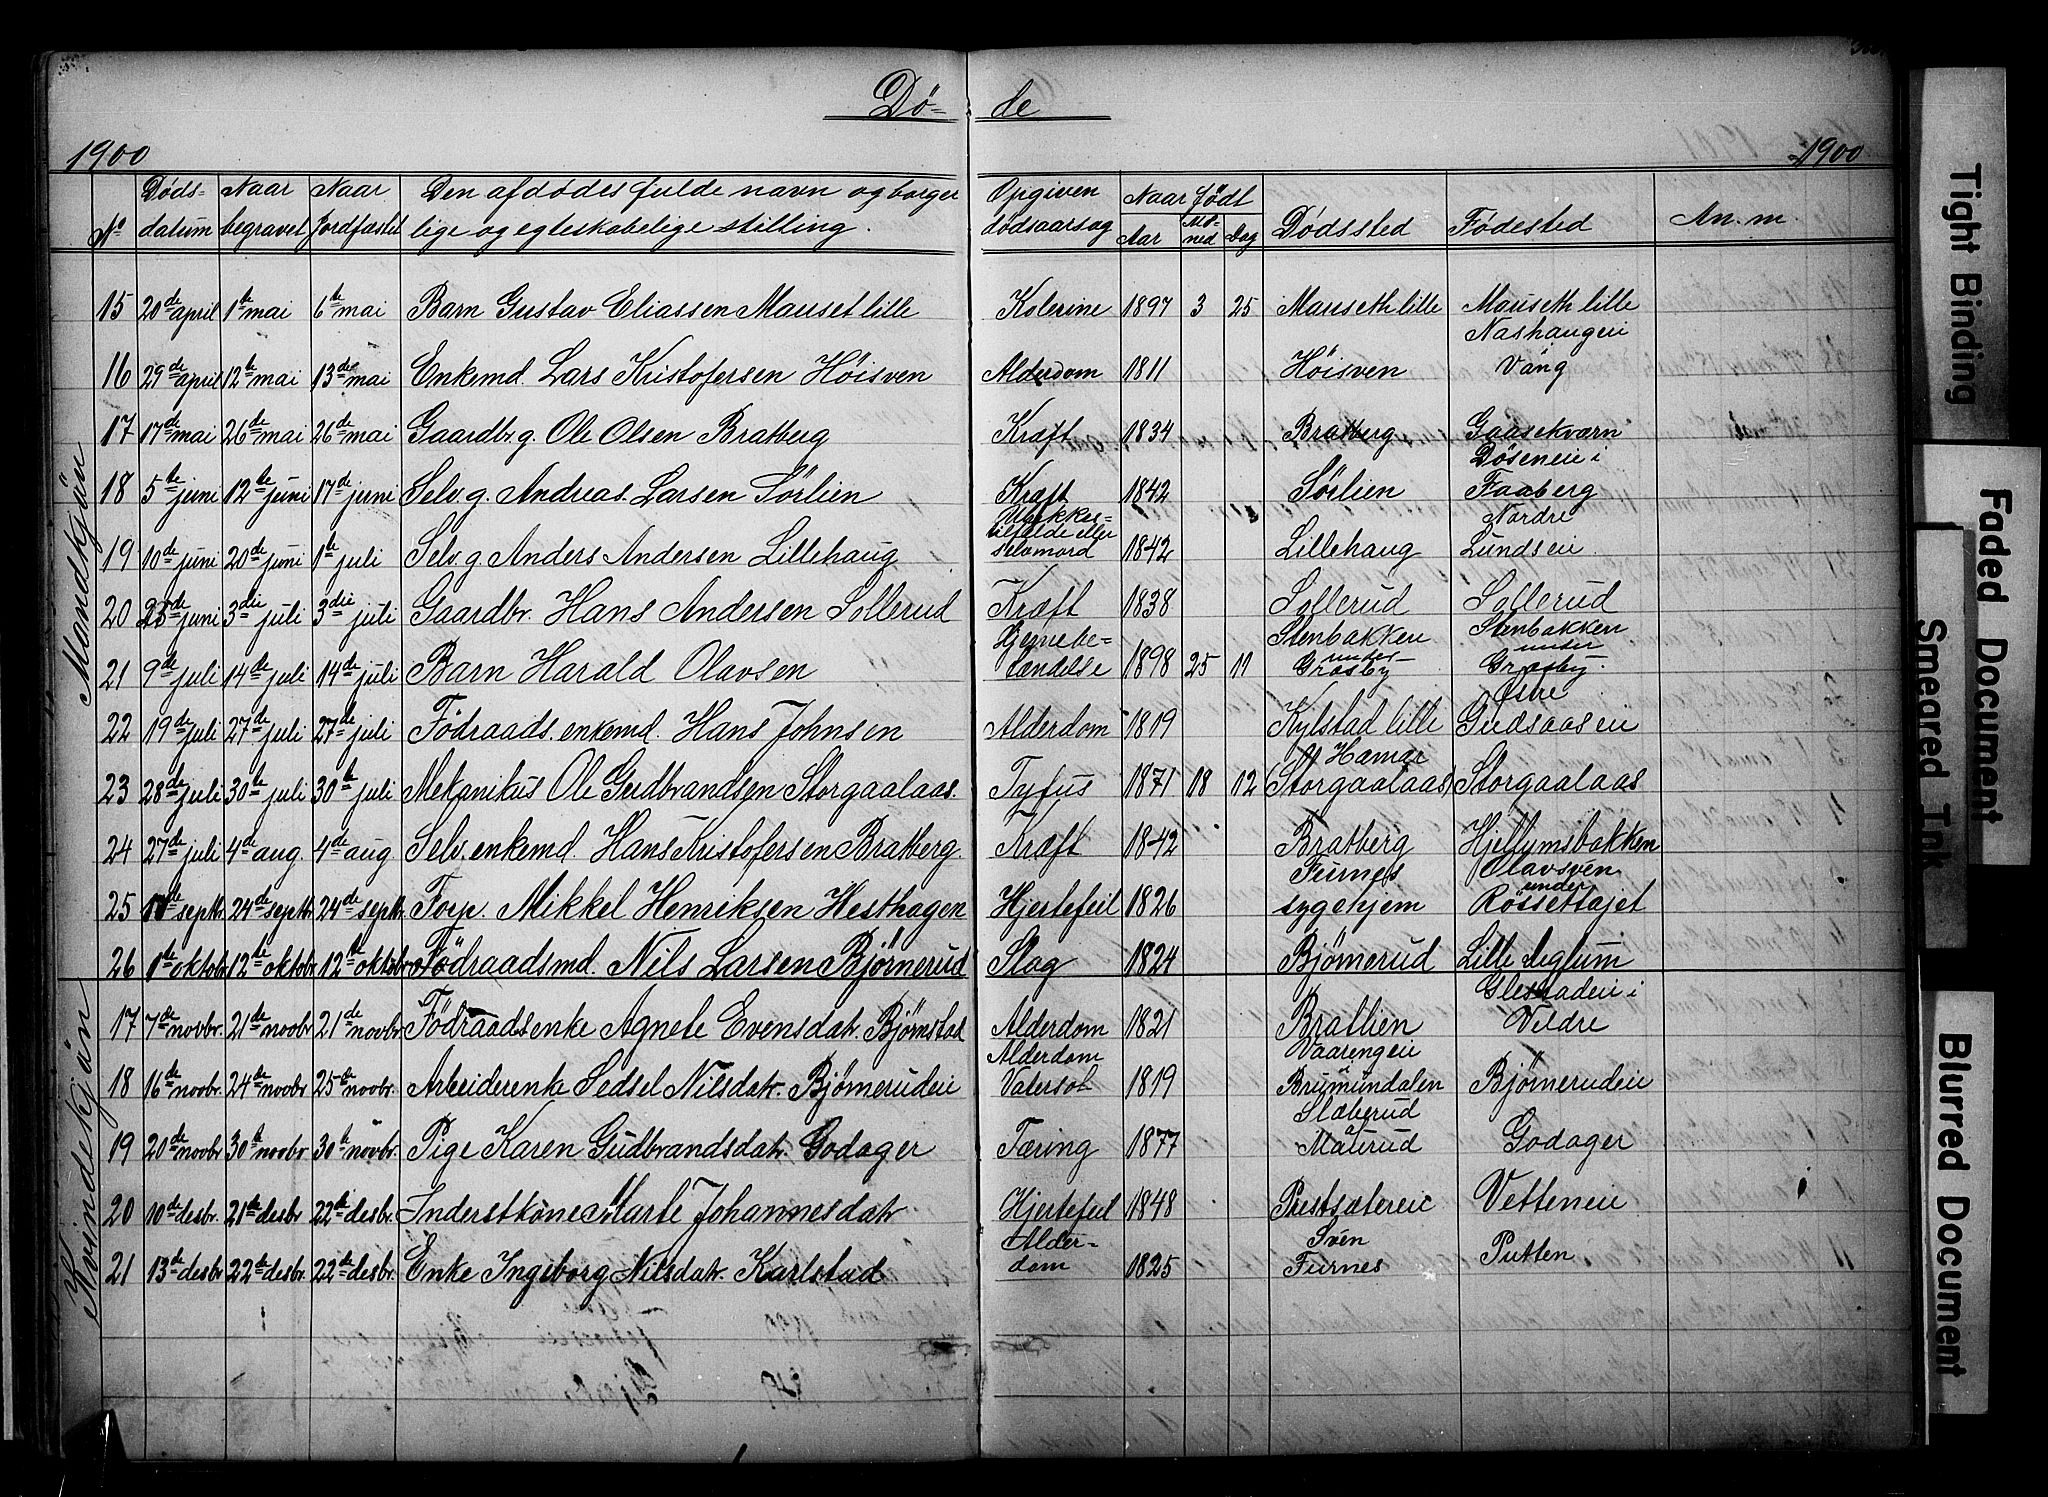 Dø- de
1900 1900
No Døds- datum Naar begravet Naar Jordfæstet Den afdødes fulde navn og borger lige og egteskabelige stilling. Opgiven dødsaarsag Naar født Aar Må- ned Dag Dødssted Fødested An. m.
Mandkjøn
15 20de april 1te mai 6te mai Barn Gustav Eliassen Mauset lille Kolerine 1897 3 25 Mauseth lille Mauseth lille
16 29de april 12te mai 13de mai Enkemd. Lars Kristofersen Høisven Alderdom 1811 Høisven Nashaugen Vang
17 17de mai 26de mai 26de mai Gaardbr.g. Ole Olsen Bratberg Kræft 1834 Bratberg Gaasekværn
18 5te juni 12te juni 17de juni Selv.g. Andreas Larsen Sørlien Kræft 1842 Sørlien Døseneie i Faaberg
19 10de juni 20de juni 1te juli Selv.g. Anders Andersen Lillehaug Ulykkes- tilfælde eller selvmord 1842 Lillehaug Nordre Lundseie
20 23de juni 3die juli 3die juli Gaardbr. Hans Andersen Sollerud Kræft 1838 Sollerud Sollerud
21 9de juli 14de juli 14de juli Barn Harald Olavsen Hjernebe- tændelse 1898 25 11 Stenbakken under Græsby Stenbakken under Græsby.
22 19de juli 27de juli 27de juli Födraads.enkemd. Hans Johnsen Alderdom 1819 Kylstad lille Østre Gudsaaseie
23 28de juli 30te juli 30te juli Mekanikus Ole Gudbrandsen Storgaalaas. Tyfus 1871 18 12 Hamar (Storgaalaas) Storgaalaas
24 27de juli 4de aug. 4de aug. Selv.enkemd. Hans Kristofersen Bratberg. Kræft 1842 Bratberg Hjellumsbakken
25 17de septbr. 24de septbr. 24de septbr. Forp. Mikkel Henriksen Hesthagen Hjertefeil 1826 Furnes sygehjem Olavsven under Røssettajet
26 1te oktobr. 12te oktobr. 12te oktobr. Födraadsmd. Nils Larsen Bjørnerud Slag 1824 Bjørnerud Lille Deglum
Kvindekjøn
17 7de novbr. 21de novbr 21de novbr. Födraadsenke Agnete Evensdatr. Bjørnstad Alderdom 1821 Bratlien Glestadeie i Veldre
18 16de novbr. 24de novbr 25de novbr. Arbeiderenke Sedsel Nilsdatr. Bjørnerudeie Alderdom Vatersot 1819 Vaarengeie Brumunddalen Bjørnerudeie
19 20de novbr 30te novbr 30te novbr. Pige Karen Gudbrandsdatr. Godager Tæring 1877 Slæberud Måterud Godager
20 10de desbr. 21de desbr 22de desbr. Inderstkone Marte Johannesdatr Hjertefeil 1848 Prestsætereie Vetteneie
21 13de desbr 22de desbr. 22de desbr. Enke Ingeborg Nilsdatr. Karlstad Alder- dom 1825 Sven Furnes Putten
Tight Binding
Faded Document
Smeared Ink
Blurred Document